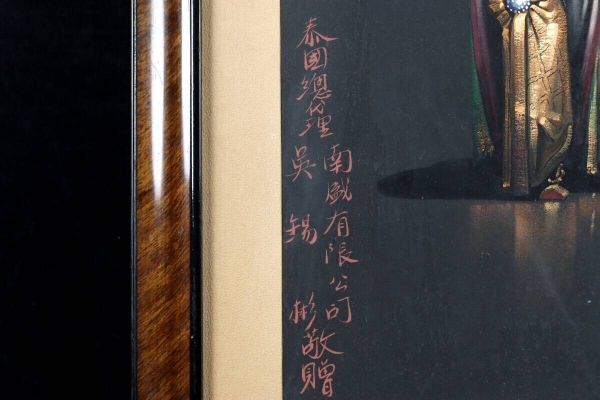 泰國總代理
南盛有限公司
吳錫彬敬贈